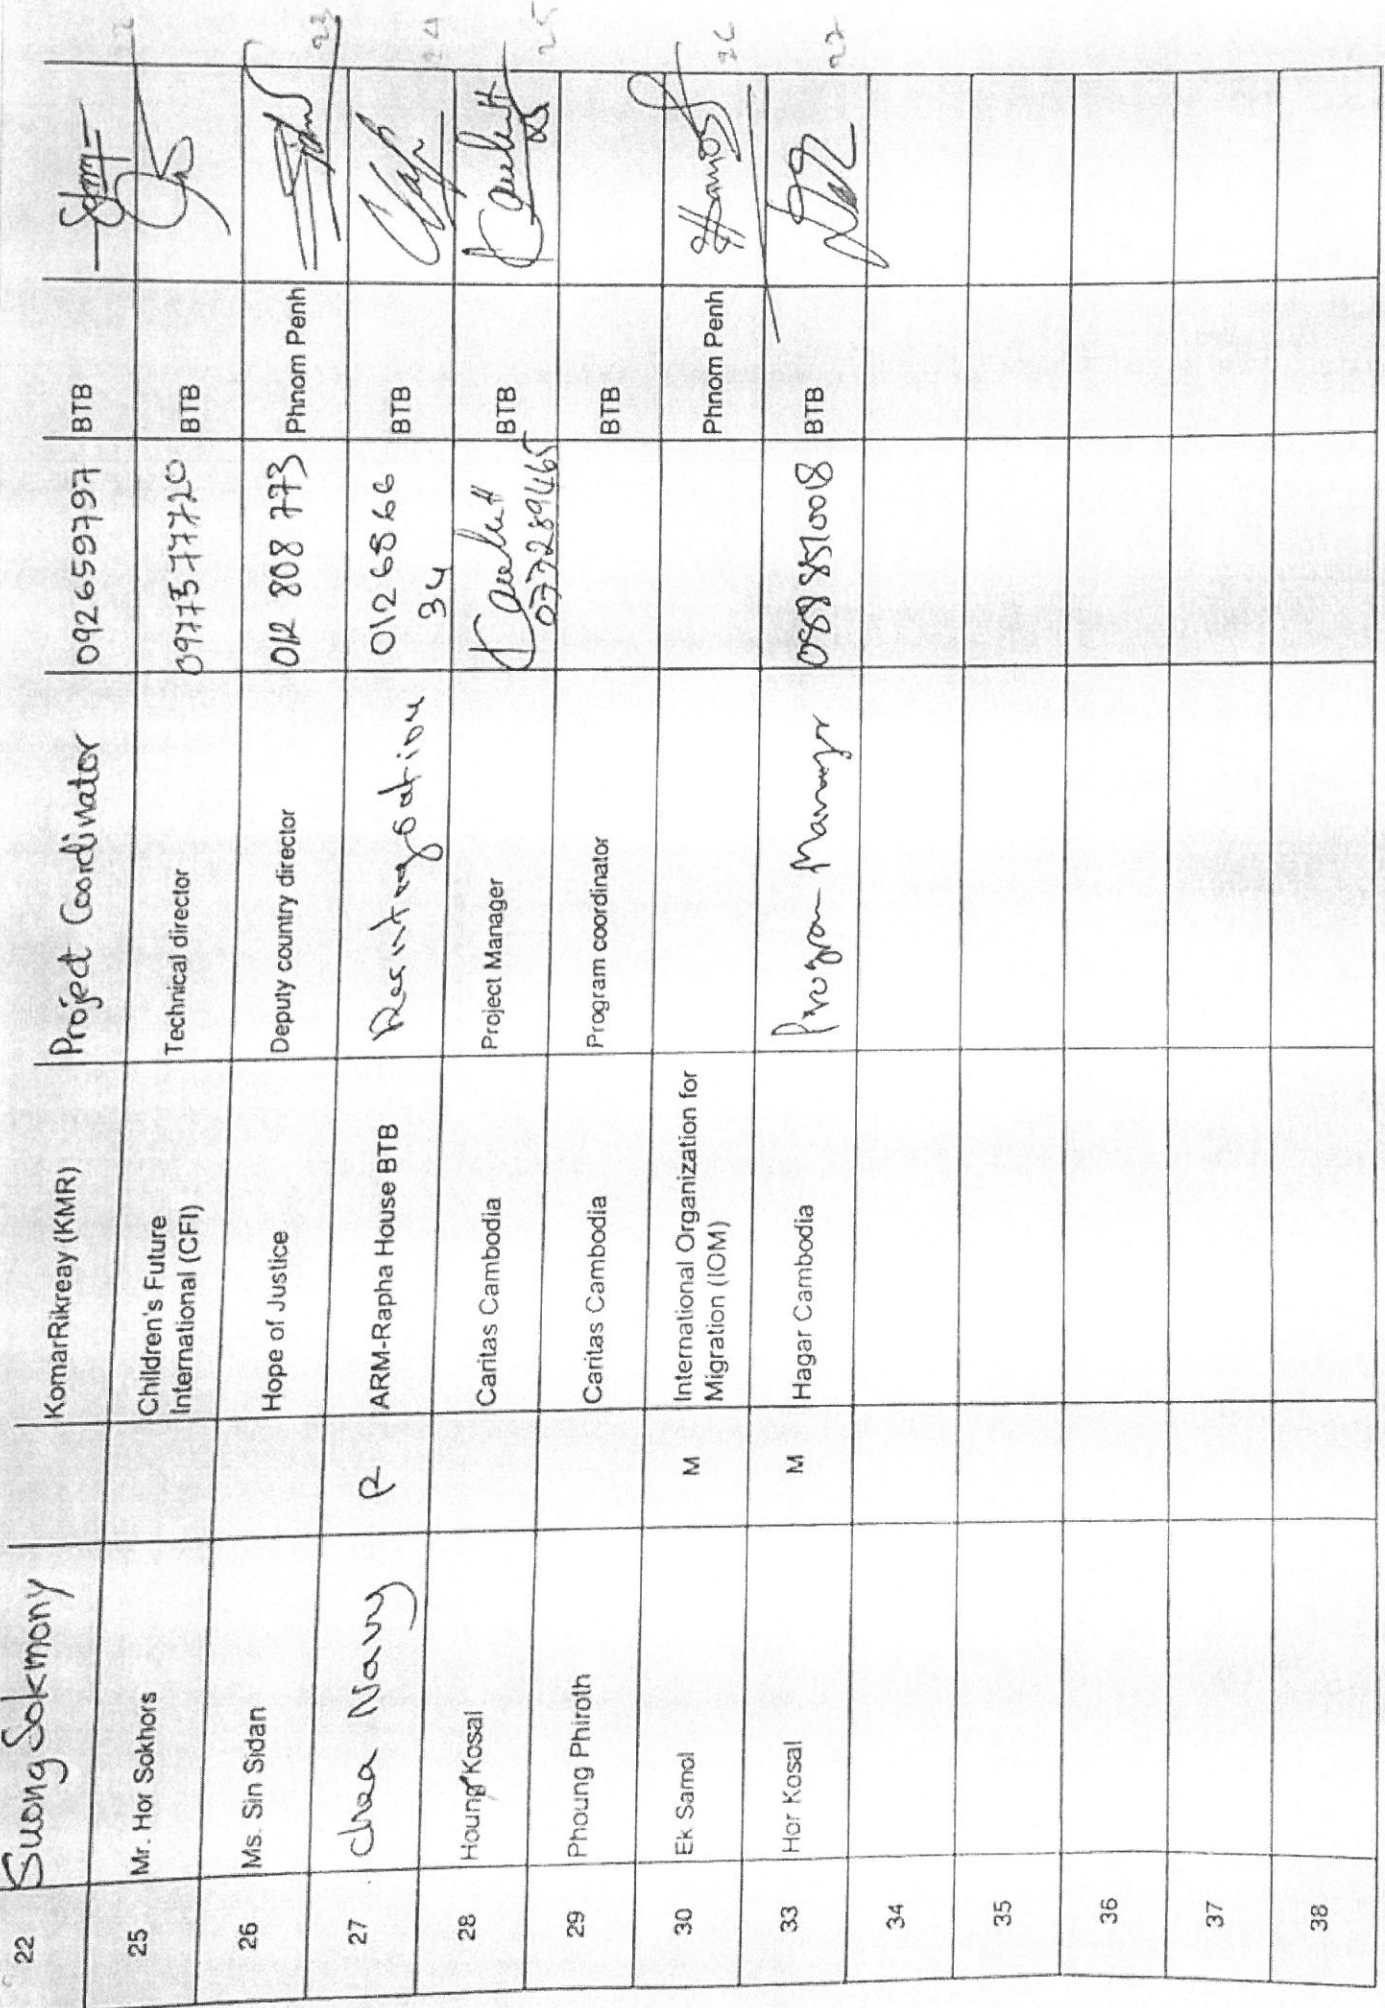 22 Suong Sokmony KomarRikreay (KMR) Project Coordinator 092659797 BTB
25 Mr. Hor Sokhors Children's Future Technical director 0977577720 BTB
International (CFI)
26 Ms. Sin Sidan Hope of Justice Deputy country director 012 808 773 Phnom Penh 23
27 Chea Navy ARM-Rapha House BTB 0126866 BTB
34
28 Houng Kosal Caritas Cambodia Project Manager BTB 25
0777289465
29 Phoung Phiroth Caritas Cambodia Program coordinator BTB
30 Ek Samol M International Organization for Phnom Penh 26
Migration (IOM)
33 Hor Kosal M Hagar Cambodia Program Manager BTB 27
34
35
36
37
38